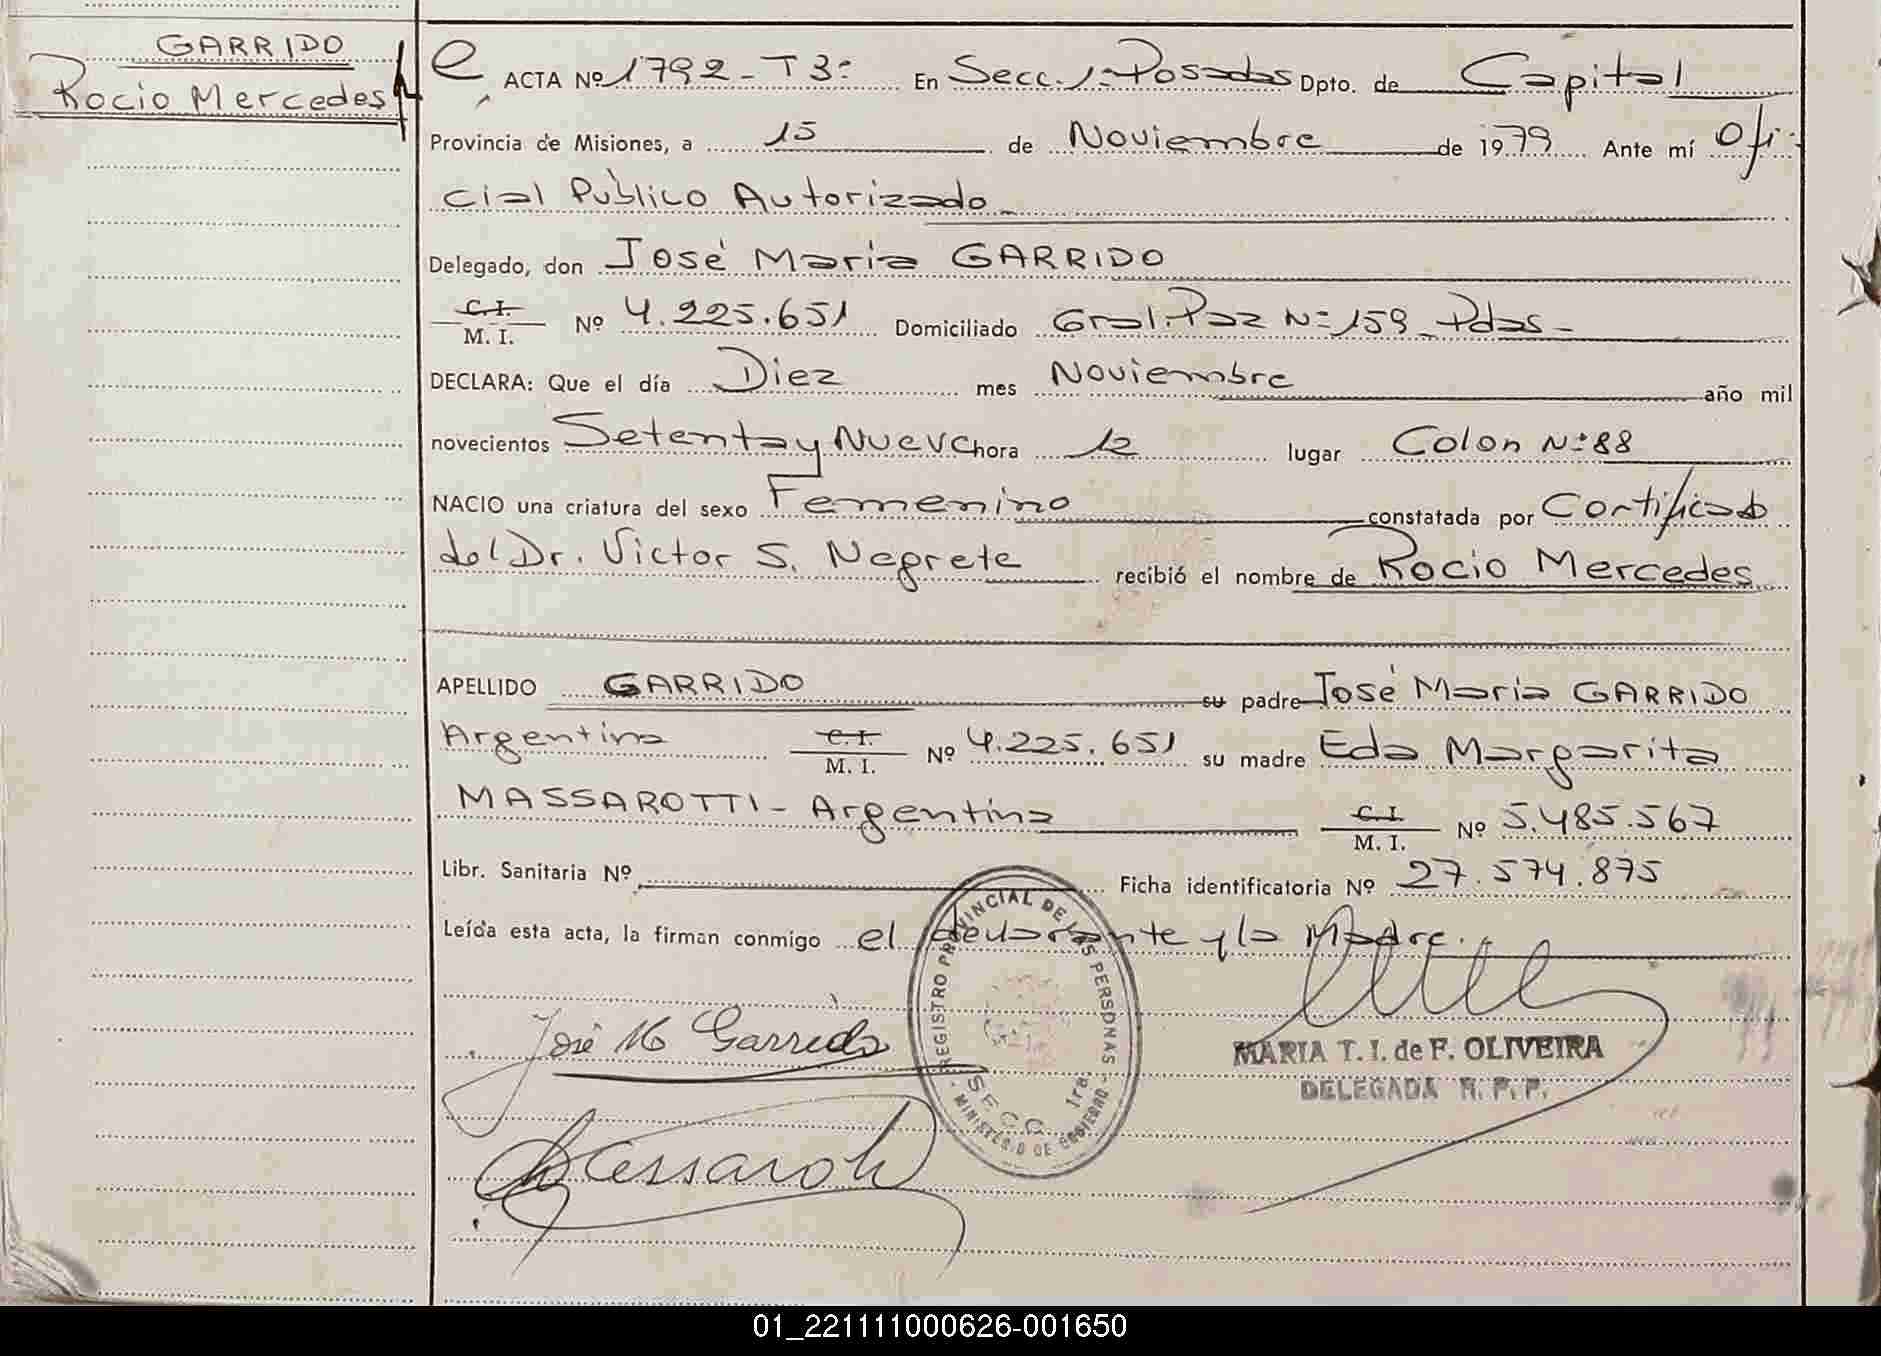 GARRIDO
Rocio Mercedes
ACTA Nº 1792 - T 3º En Secc. 1º Posadas Dpto. de Capital
Provincia de Misiones, a 15 de Noviembre de 1979 Ante mí Ofi-
cial Público Autorizado
Delegado, don José Maria GARRIDO
C. I.
M. I. Nº 4.225.651 Domiciliado Gral. Paz Nº 159 - Pdas -
DECLARA: Que el día Diez mes Noviembre año mil
novecientos Setenta y Nueve hora 12 lugar Colon Nº 88
NACIO una criatura del sexo Femenino constatada por Certificado
del Dr. Victor S. Negrete recibió el nombre de Rocio Mercedes
APELLIDO GARRIDO su padre José Maria GARRIDO
Argentino C. I. M. I. Nº 4.225.651 su madre Eda Margarita
MASSAROTTI - Argentina C. I. M. I. Nº 5.485.567
Libr. Sanitaria Nº Ficha identificatoria Nº 27.574.875
Leída esta acta, la firman conmigo el declarante y la Madre.
REGISTRO PROVINCIAL DE LAS PERSONAS
SECC. 1ra.
- MINISTERIO DE GOBIERNO -
José M Garrido
MARIA T. I. de F. OLIVEIRA
DELEGADA R. P. P.
Massarotti
01_221111000626-001650